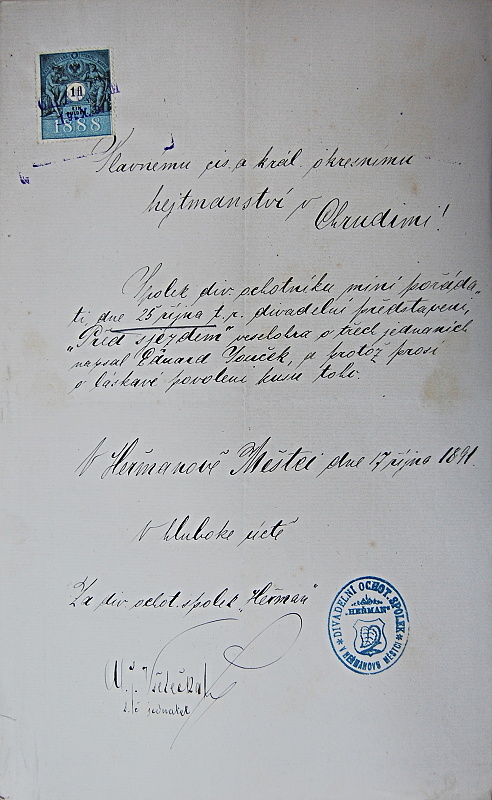 1 fl
1888
Slavnemu cis. a král. okresnímu
hejtmanství v Chrudimi!
Spolek div. ochotníku míní pořáda-
ti dne 25 října t. r. divadelní představení,
"Před sjezdem" veselohra o třech jednáních
napsal Eduard a protož prosí
o láskavé povolení kusu toho.
V Heřmanově Městci dne 17 října 1891.
V hluboke úctě
Za div. ochot. spolek "Heřman"
DIVADELNÍ OCHOT. SPOLEK
"HEŘMAN"
V HEŘMANOVĚ MĚSTCI
jednatel